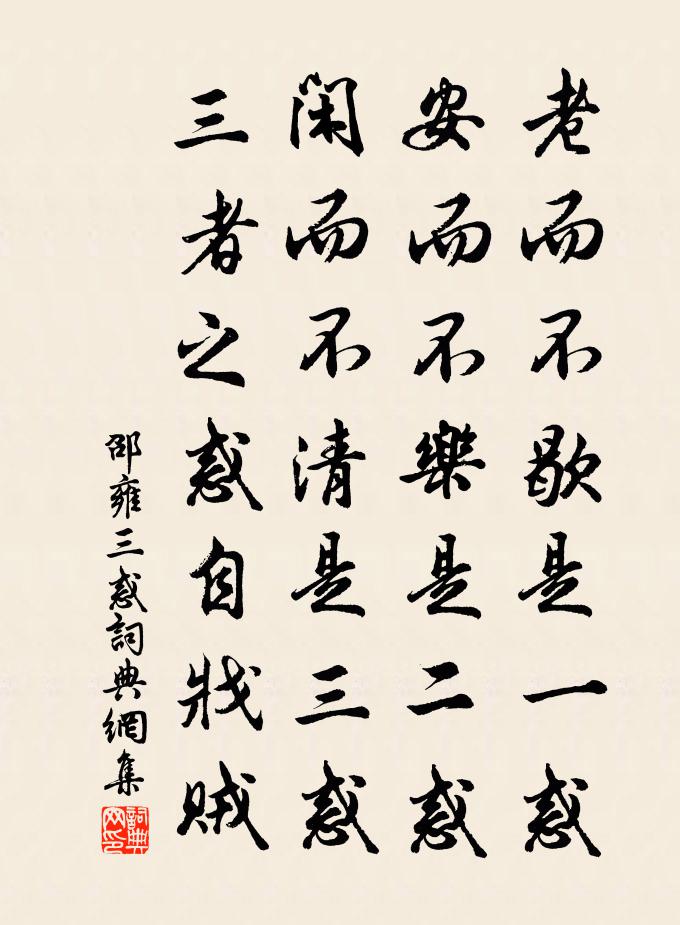 老而不歇是一惑
安而不樂是二惑
閑而不清是三惑
三者之惑自戕賊
邵雍三惑詞典網集
詞典網印